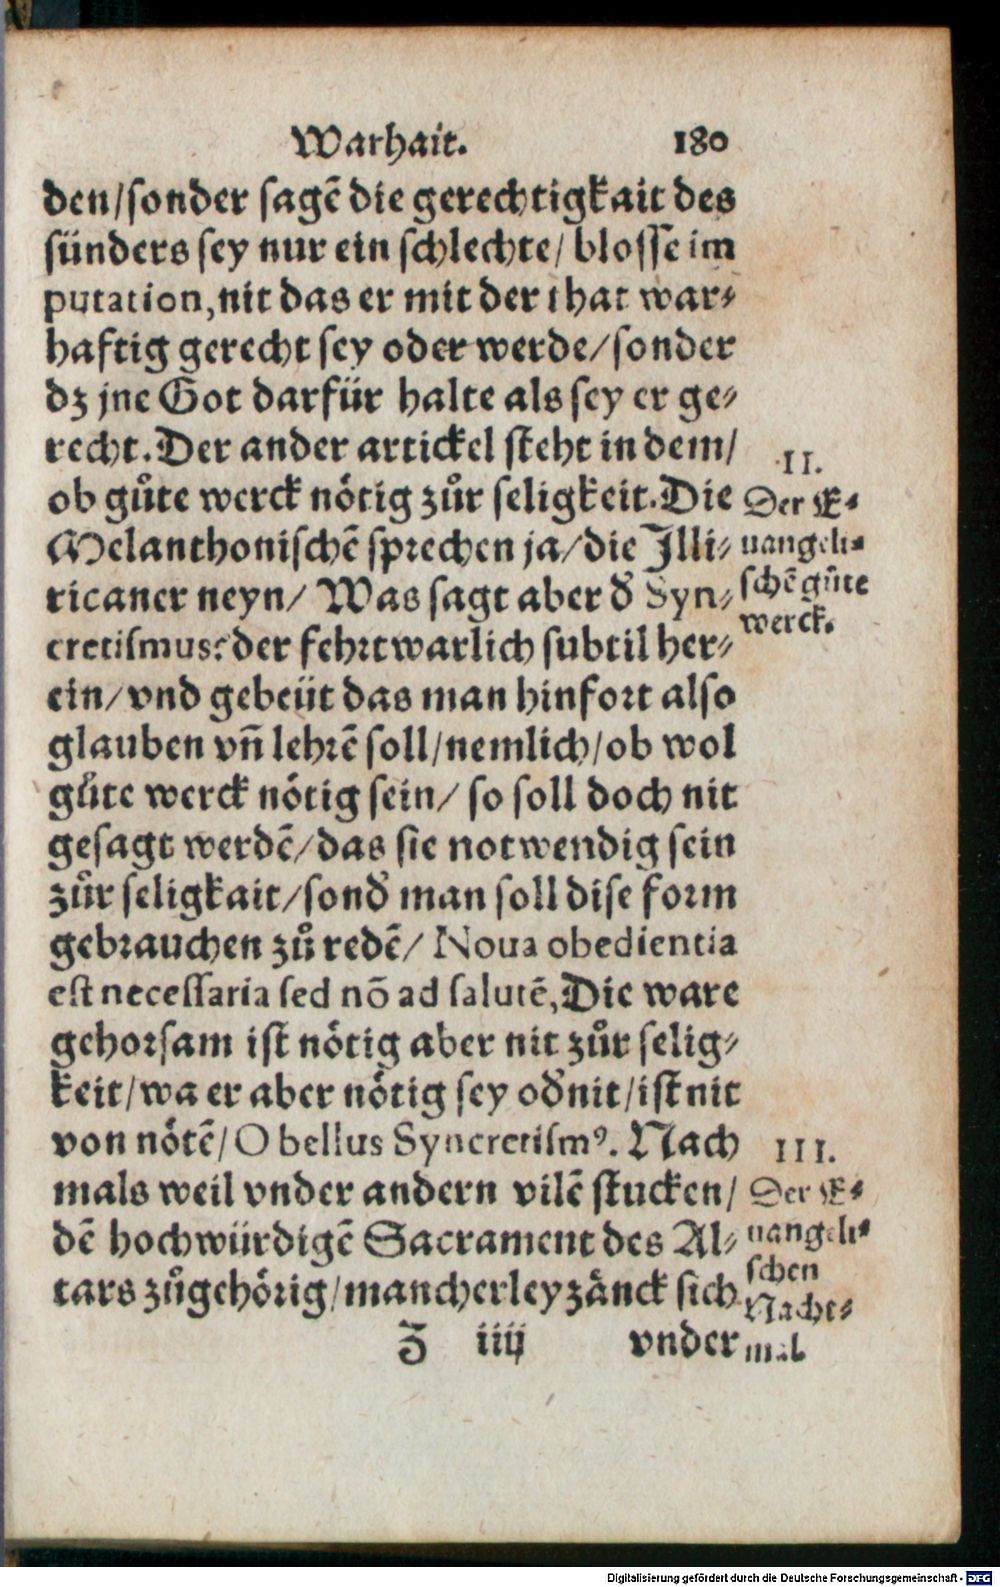 Warhait. 180
den/sonder sagē die gerechtigkait des
sünders sey nur ein schlechte/ blosse im
putation,nit das er mit der that war⸗
haftig gerecht sey oder werde/sonder
dz jne Got darfür halte als sey er ge⸗
recht. Der ander artickel steht in dem/
ob gůte werck nötig zůr seligkeit. Die
Melanthonischē sprechen ja/die Illi⸗
ricaner neyn/ Was sagt aber d̄ Syn⸗
cretismus? der fehrt warlich subtil her⸗
ein/vnd gebeüt das man hinfort also
glauben vñ lehrē soll/nemlich/ob wol
gůte werck nötig sein/ so soll doch nit
gesagt werdē/das sie notwendig sein
zůr seligkait/sond̄ man soll dise form
gebrauchen zů redē/ Noua obedientia
est necessaria sed nō ad salutē, Die ware
gehorsam ist nötig aber nit zůr selig⸗
keit/wa er aber nötig sey od̄ nit/ist nit
von nötē/O bellus Syncretismꝰ. Nach
mals weil vnder andern vilē stucken/
dē hochwürdigē Sacrament des Al⸗
tars zůgehörig/mancherley zänck sich
Z iiij vnder
II.
Der E⸗
uangeli⸗
schē gůte
werck.
III.
Der E⸗
uangeli⸗
schen
Nacht⸗
mal
Digitalisierung gefördert durch die Deutsche Forschungsgemeinschaft - DFG